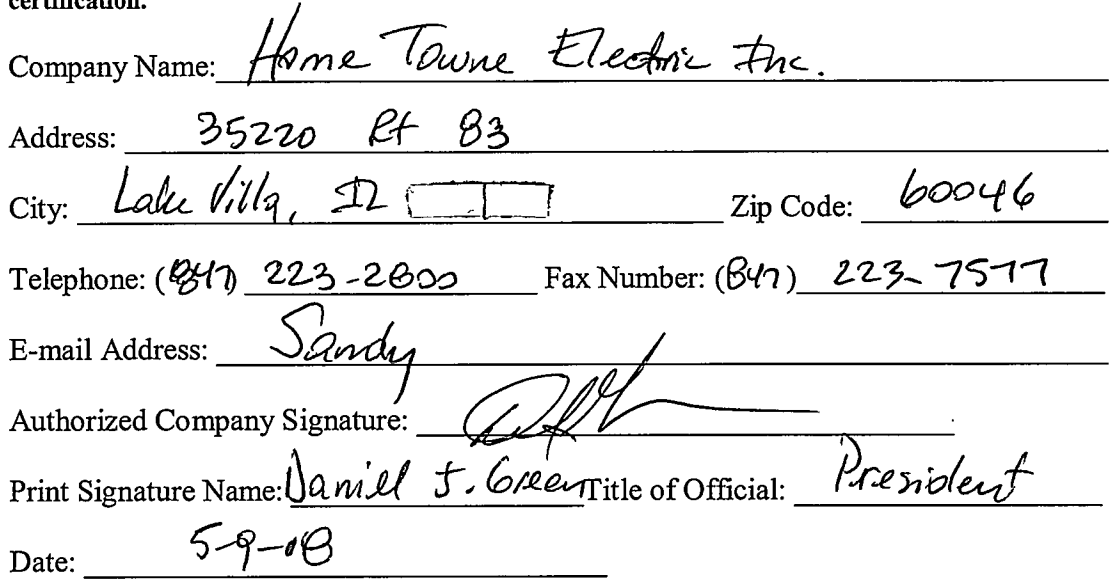 certification.
Company Name: Home Towne Electric Inc.
Address: 35220 Rt 83
City: Lake Villa, IL Zip Code: 60046
Telephone: (847) 223-2800 Fax Number: (847) 223-7577
E-mail Address: Sandy
Authorized Company Signature:
Print Signature Name: Daniel J. Green Title of Official: President
Date: 5-9-08